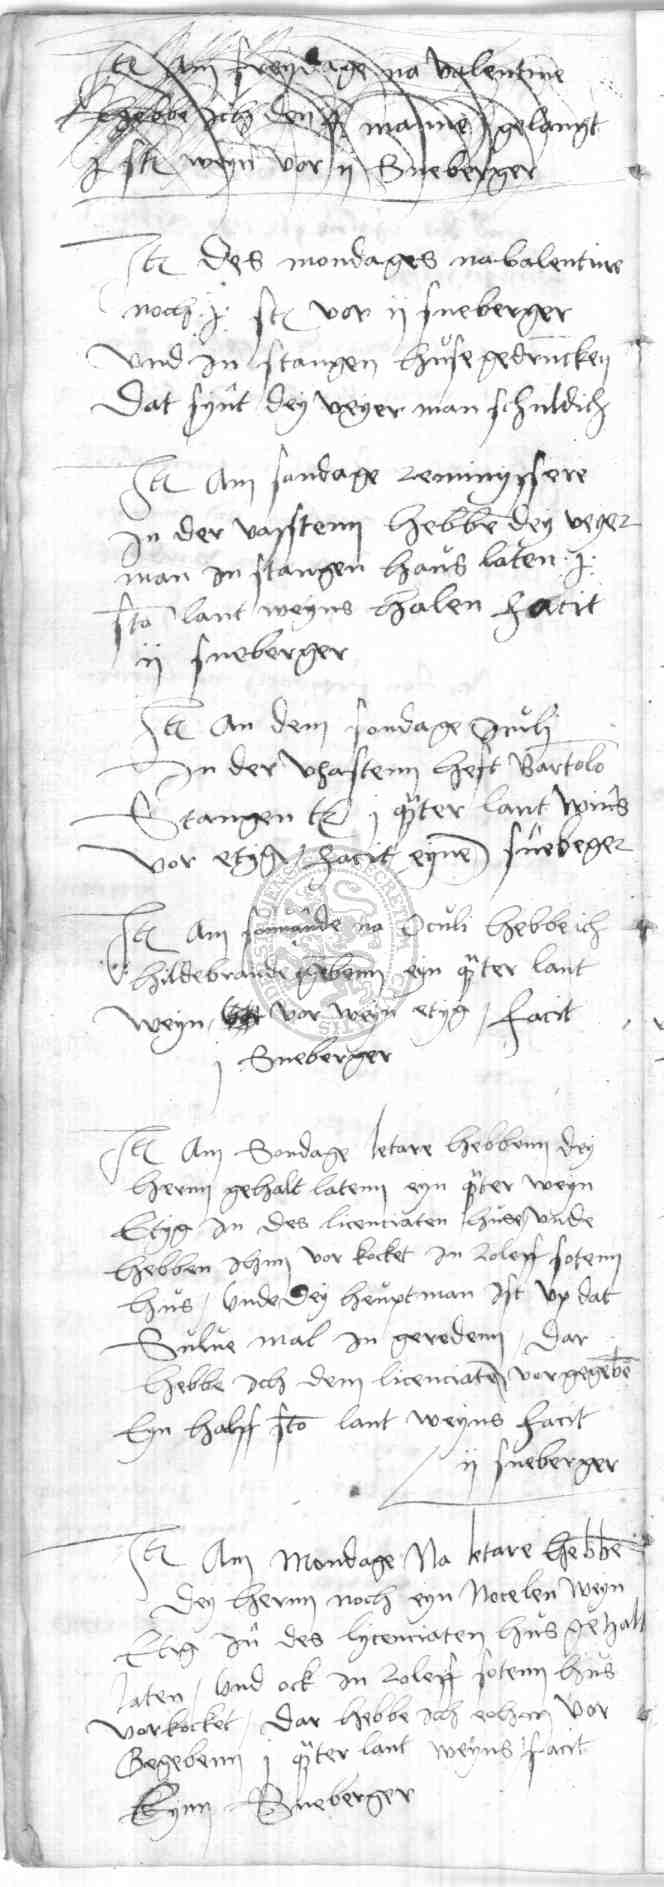 Ite Am freydage na valentine
hebbe ich den manne gelangt
j ste weyn vor ij Sneberger
Ite des mondages na valentine
noch .j. ste vor ij sneberger
Und in stangen huse gedruncken
Dat synt dey veyer man schuldich
Ite Am sondage reminyssere
In der vasstenn hebbe dey veyer
man in stangen haus laten .j.
sto lant weyns halen facit
ij sneberger
Ite An dem sondage Oculi
In der vhastenn heft Bartolo
Stangen j qrter lant wins
vor etyg / facit eyne snebeger
Ite Am sonnavnde na Oculi hebbe ich
hildebrande gebenn eyn qrter lant
weyn, vor weyn etyg / facit
j Sneberger
Ite Am Sondage letare hebbenn dey
hernn gehalt latenn eyn qrter weyn
Etyg in des licenciaten huse unde
hebben ihnn vor kocket in Roleff sotenn
hus / Unde Dey heuptman ist up dat
Sulue mal in geredenn, Dar
hebbe ich dem licenciate vor gegebe
Eyn halff sto lant weyns facit
ij sneberger
Ite Am Mondage Na letare hebbe
dey hernn noch eyn Nocelen Weyn
Etig in des lycenciaten hus gehalt
laten / Und ock in Roleff sotenn hus
vorkocket / Dar hebbe ich vor
Gegebenn j qrter lant weyns facit
Eynn Sneberger